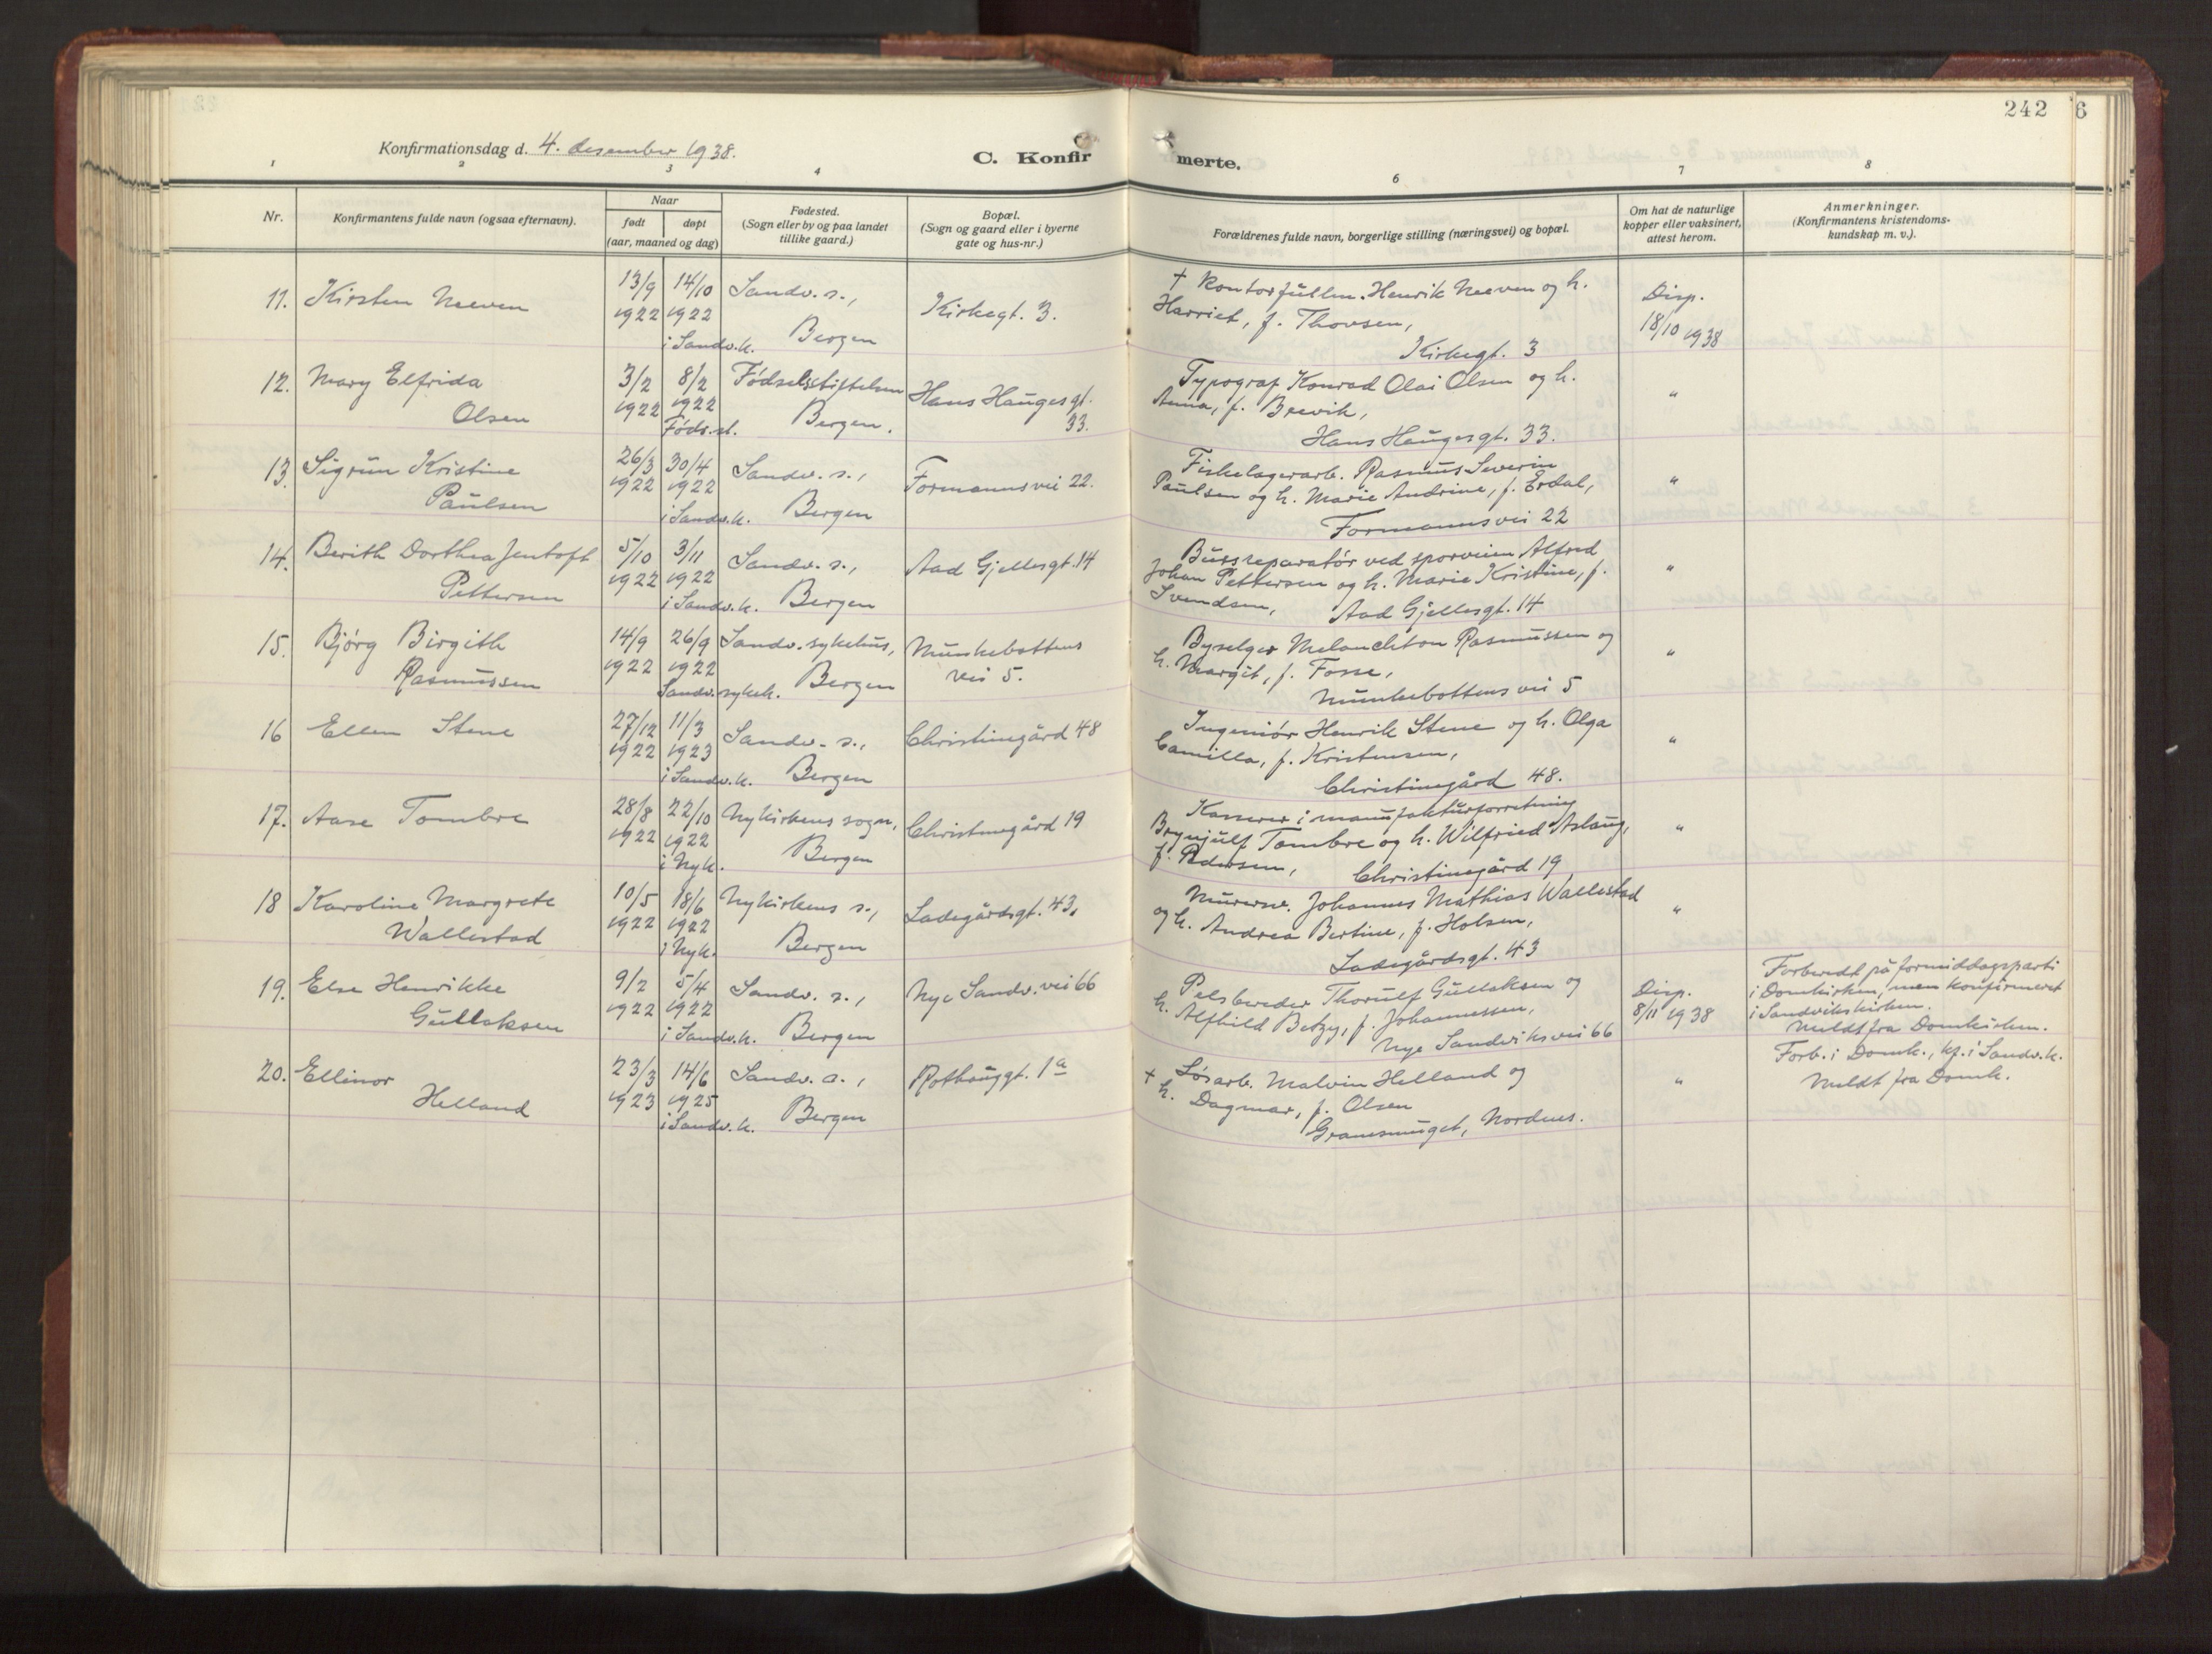 242 6
Konfirmationsdag d. 4. desember 1938.
C. Konfirmerte.
1 2 3 4 6 7 8
Nr.
Konfirmantens fulde navn (ogsaa efternavn).
Naar
født døpt
(aar, maaned og dag)
Fødested.
(Sogn eller by og paa landet
tillike gaard.)
Bopæl.
(Sogn og gaard eller i byerne
gate og hus-nr.)
Forældrenes fulde navn, borgerlige stilling (næringsvei) og bopæl.
Om hat de naturlige
kopper eller vaksinert,
attest herom.
Anmerkninger.
(Konfirmantens kristendoms-
kundskap m. v.).
11. Kirsten Neeven
13/9 1922
14/10 1922
i Sandv.k.
Sandv. s.,
Bergen
Kirkegt. 3.
† Kontorfullm. Henrik Neeven og h.
Harriet, f. Thovsen,
Kirkegt. 3
Disp.
18/10 1938
12. Mary Elfrida
Olsen
3/2 1922
8/2 1922
Føds.st.
Fødselsstiftelsen
Bergen.
Hans Haugesgt.
33.
Typograf Konrad Olai Olsen og h.
Anna, f. Brevik,
Hans Haugesgt. 33.
"
13. Sigrun Kristine
Paulsen
26/3 1922
30/4 1922
i Sandv.k.
Sandv. s.,
Bergen
Formannsvei 22.
Fiskelagerarb. Rasmus Severin
Paulsen og h. Marie Andrine, f. Erdal,
Formannsvei 22
"
14. Berith Dorthea Jentoft
Pettersen
5/10 1922
3/11 1922
i Sandv.k.
Sandv. s.,
Bergen
Aad Gjellesgt. 14
Bussreparatør ved sporveien Alfred
Johan Pettersen og h. Marie Kristine, f.
Svendsen, Aad Gjellesgt. 14
"
15. Bjørg Birgith
Rasmussen
14/9 1922
26/9 1922
Sandv. sykeh.
Sandv. sykehus,
Bergen
Munkebottens
vei 5.
Byselger Melanchton Rasmussen og
h. Margit, f. Fosse,
Munkebottens vei 5
"
16 Ellen Stene
27/12 1922
11/3 1923
i Sandv.k.
Sandv. s.,
Bergen
Christinegård 48
Ingeniør Henrik Stene og h. Olga
Camilla, f. Kristensen,
Christinegård 48.
"
17. Aase Tombre
28/8 1922
22/10 1922
i Nyk.
Nykirkens sogn,
Bergen
Christinegård 19
Kasserer i manufakturforretning
Brynjulf Tombre og h. Wilfried Aslaug,
f. Pedersen, Christinegård 19
"
18 Karoline Margrete
Wallestad
10/5 1922
18/6 1922
i Nyk.
Nykirkens s.,
Bergen
Ladegårdsgt. 43,
Murersv. Johannes Mathias Wallestad
og h. Andrea Bertine, f. Holsen,
Ladegårdsgt. 43
"
19. Else Henrikke
Gullaksen
9/2 1922
5/4 1922
i Sandv.k.
Sandv. s.,
Bergen
Nye Sandv. vei 66
Pelsbereder Thorulf Gullaksen og
h. Alfhild Betzy, f. Johannessen,
Nye Sandviksvei 66
Disp.
8/11 1938
Forberedt på formiddagsparti
i Domkirken, men konfirmert
i Sandvikskirken.
Meldt fra Domkirken.
20. Ellinor
Helland
23/3 1923
14/6 1925
i Sandv.k.
Sandv. s.,
Bergen
Rothauggt. 1a
† Løsarb. Malvin Helland og
h. Dagmar, f. Olsen
Granesmuget, Nordnes.
"
Forb. i Domk., kf. i Sandv.k.
Meldt fra Domk.